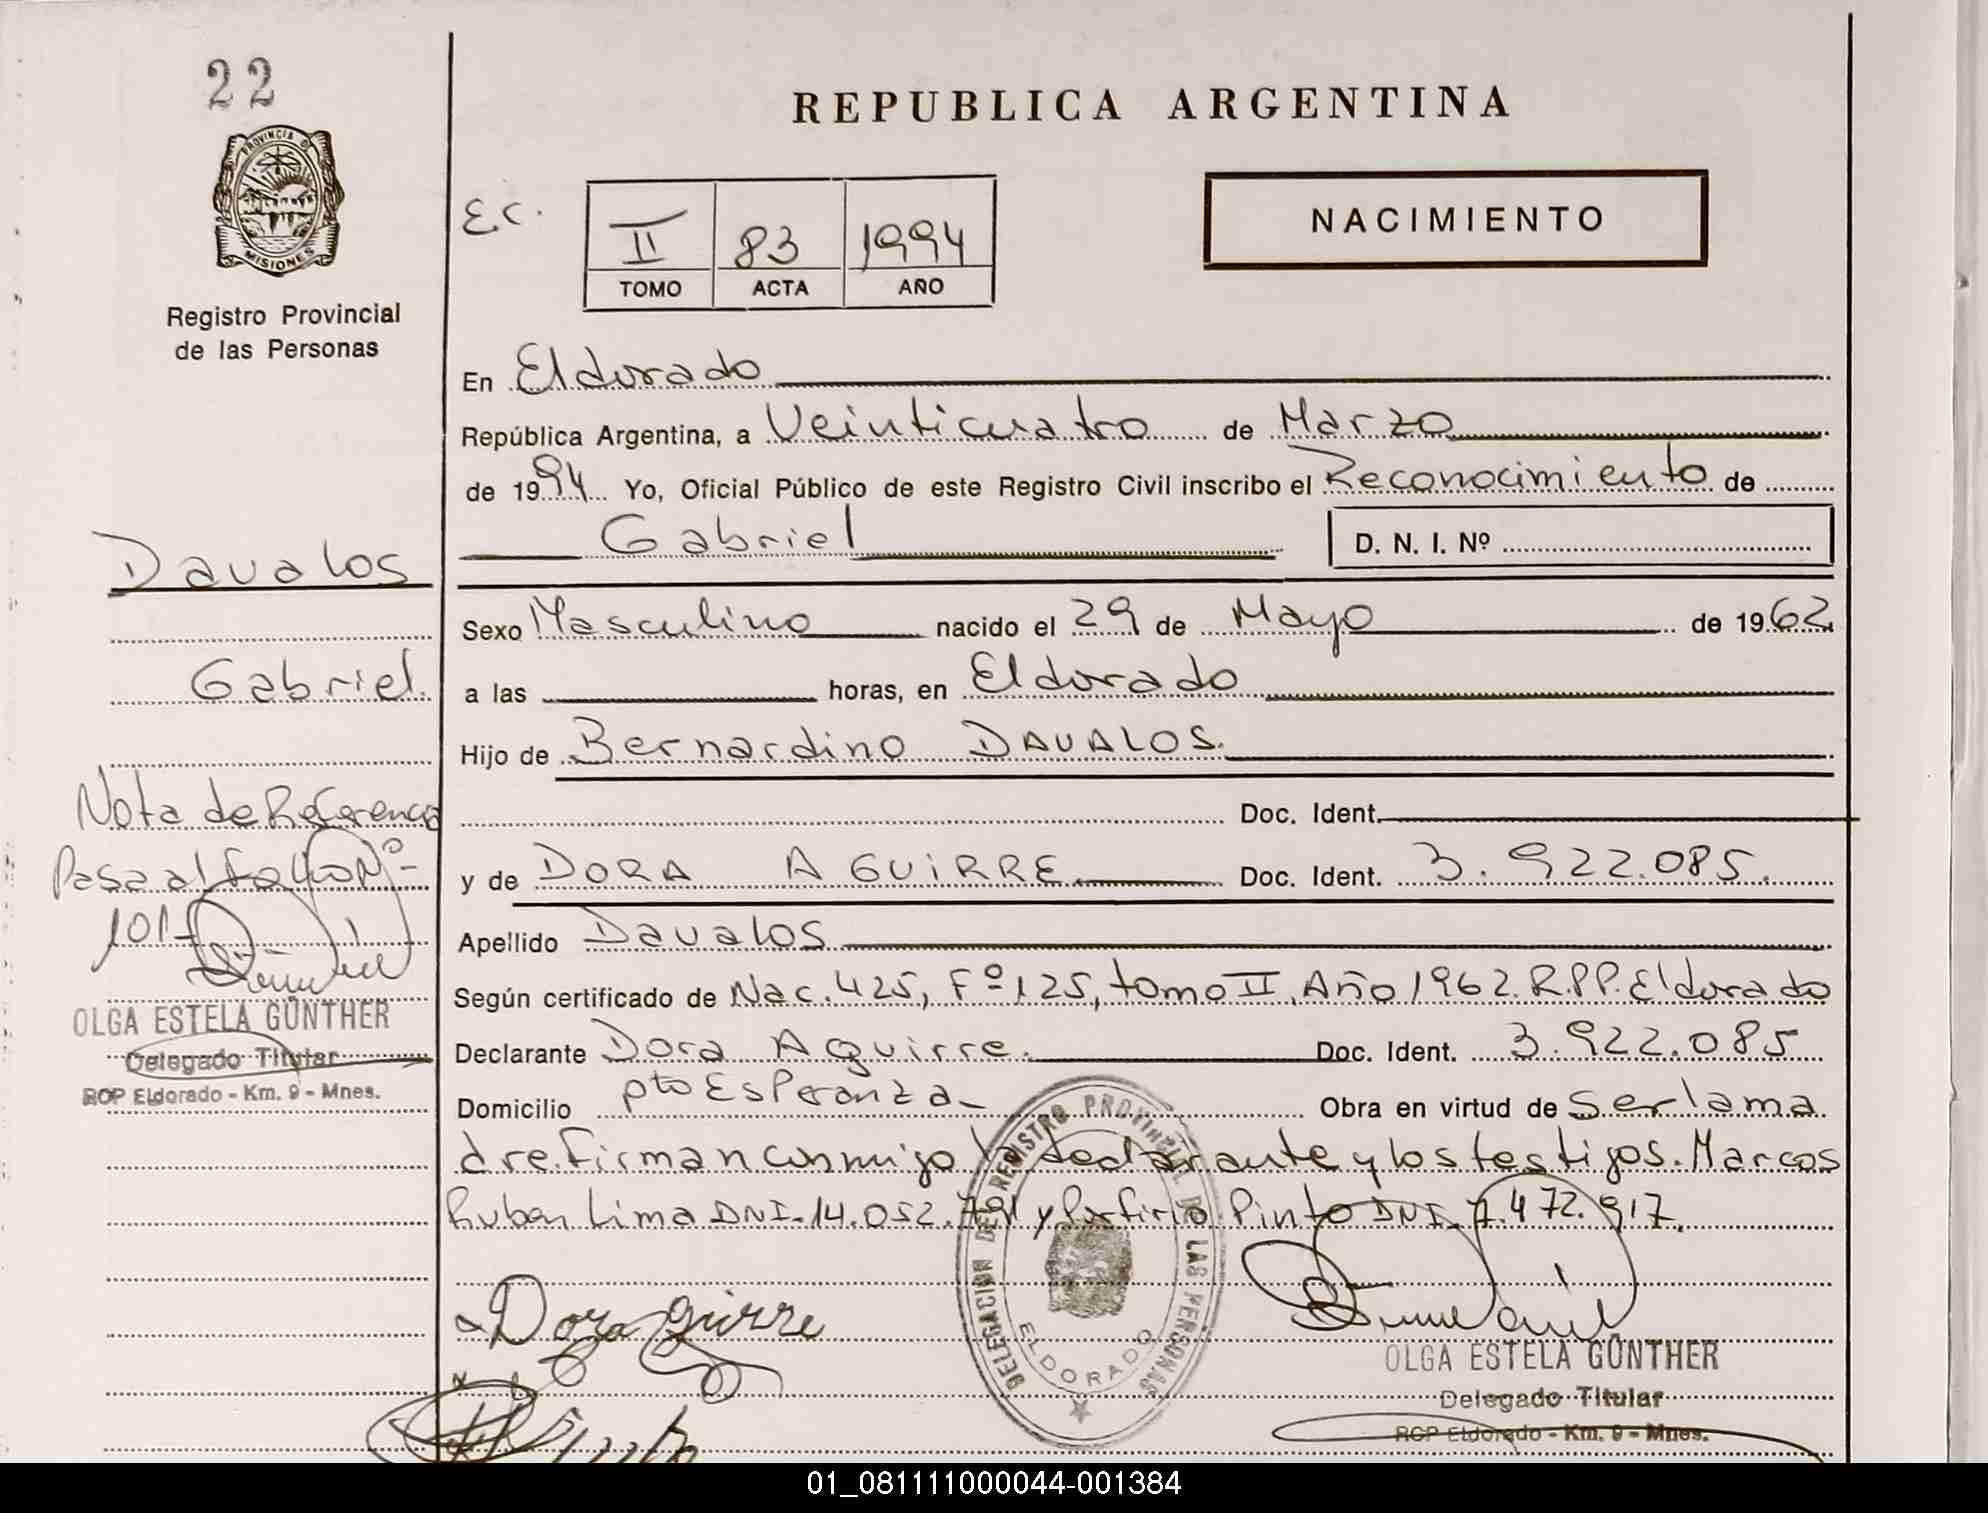 22
PROVINCIA DE
MISIONES
Registro Provincial
de las Personas
REPUBLICA ARGENTINA
E.C.
II 83 1994
TOMO ACTA AÑO
NACIMIENTO
En Eldorado
República Argentina, a Veinticuatro de Marzo
de 1994 Yo, Oficial Público de este Registro Civil inscribo el Reconocimiento de
Gabriel D. N. I. Nº
Davalos
Sexo Masculino nacido el 29 de Mayo de 1962
Gabriel. a las horas, en Eldorado
Hijo de Bernardino DAVALOS.
Nota de Referencia
Doc. Ident.
Pasa al folio Nº
y de DORA AGUIRRE Doc. Ident. 3.922.085.
101
Apellido Davalos
Según certificado de Nac. 425, Fº 125, tomo II, Año 1962. R.P.P. Eldorado
OLGA ESTELA GÜNTHER
Delegado Titular
RCP Eldorado - Km. 9 - Mnes.
Declarante Dora Aguirre. Doc. Ident. 3.922.085
Domicilio pto Esperanza - Obra en virtud de ser la ma
dre. Firman conmigo la declarante y los testigos. Marcos
Ruben Lima DNI. 14.052. y Porfirio Pinto DNI. 7.472.917.
DELEGACION DEL REGISTRO PROVINCIAL DE LAS PERSONAS
ELDORADO
Dora Aguirre
OLGA ESTELA GÜNTHER
Delegado Titular
RCP Eldorado - Km. 9 - Mnes.
01_081111000044-001384